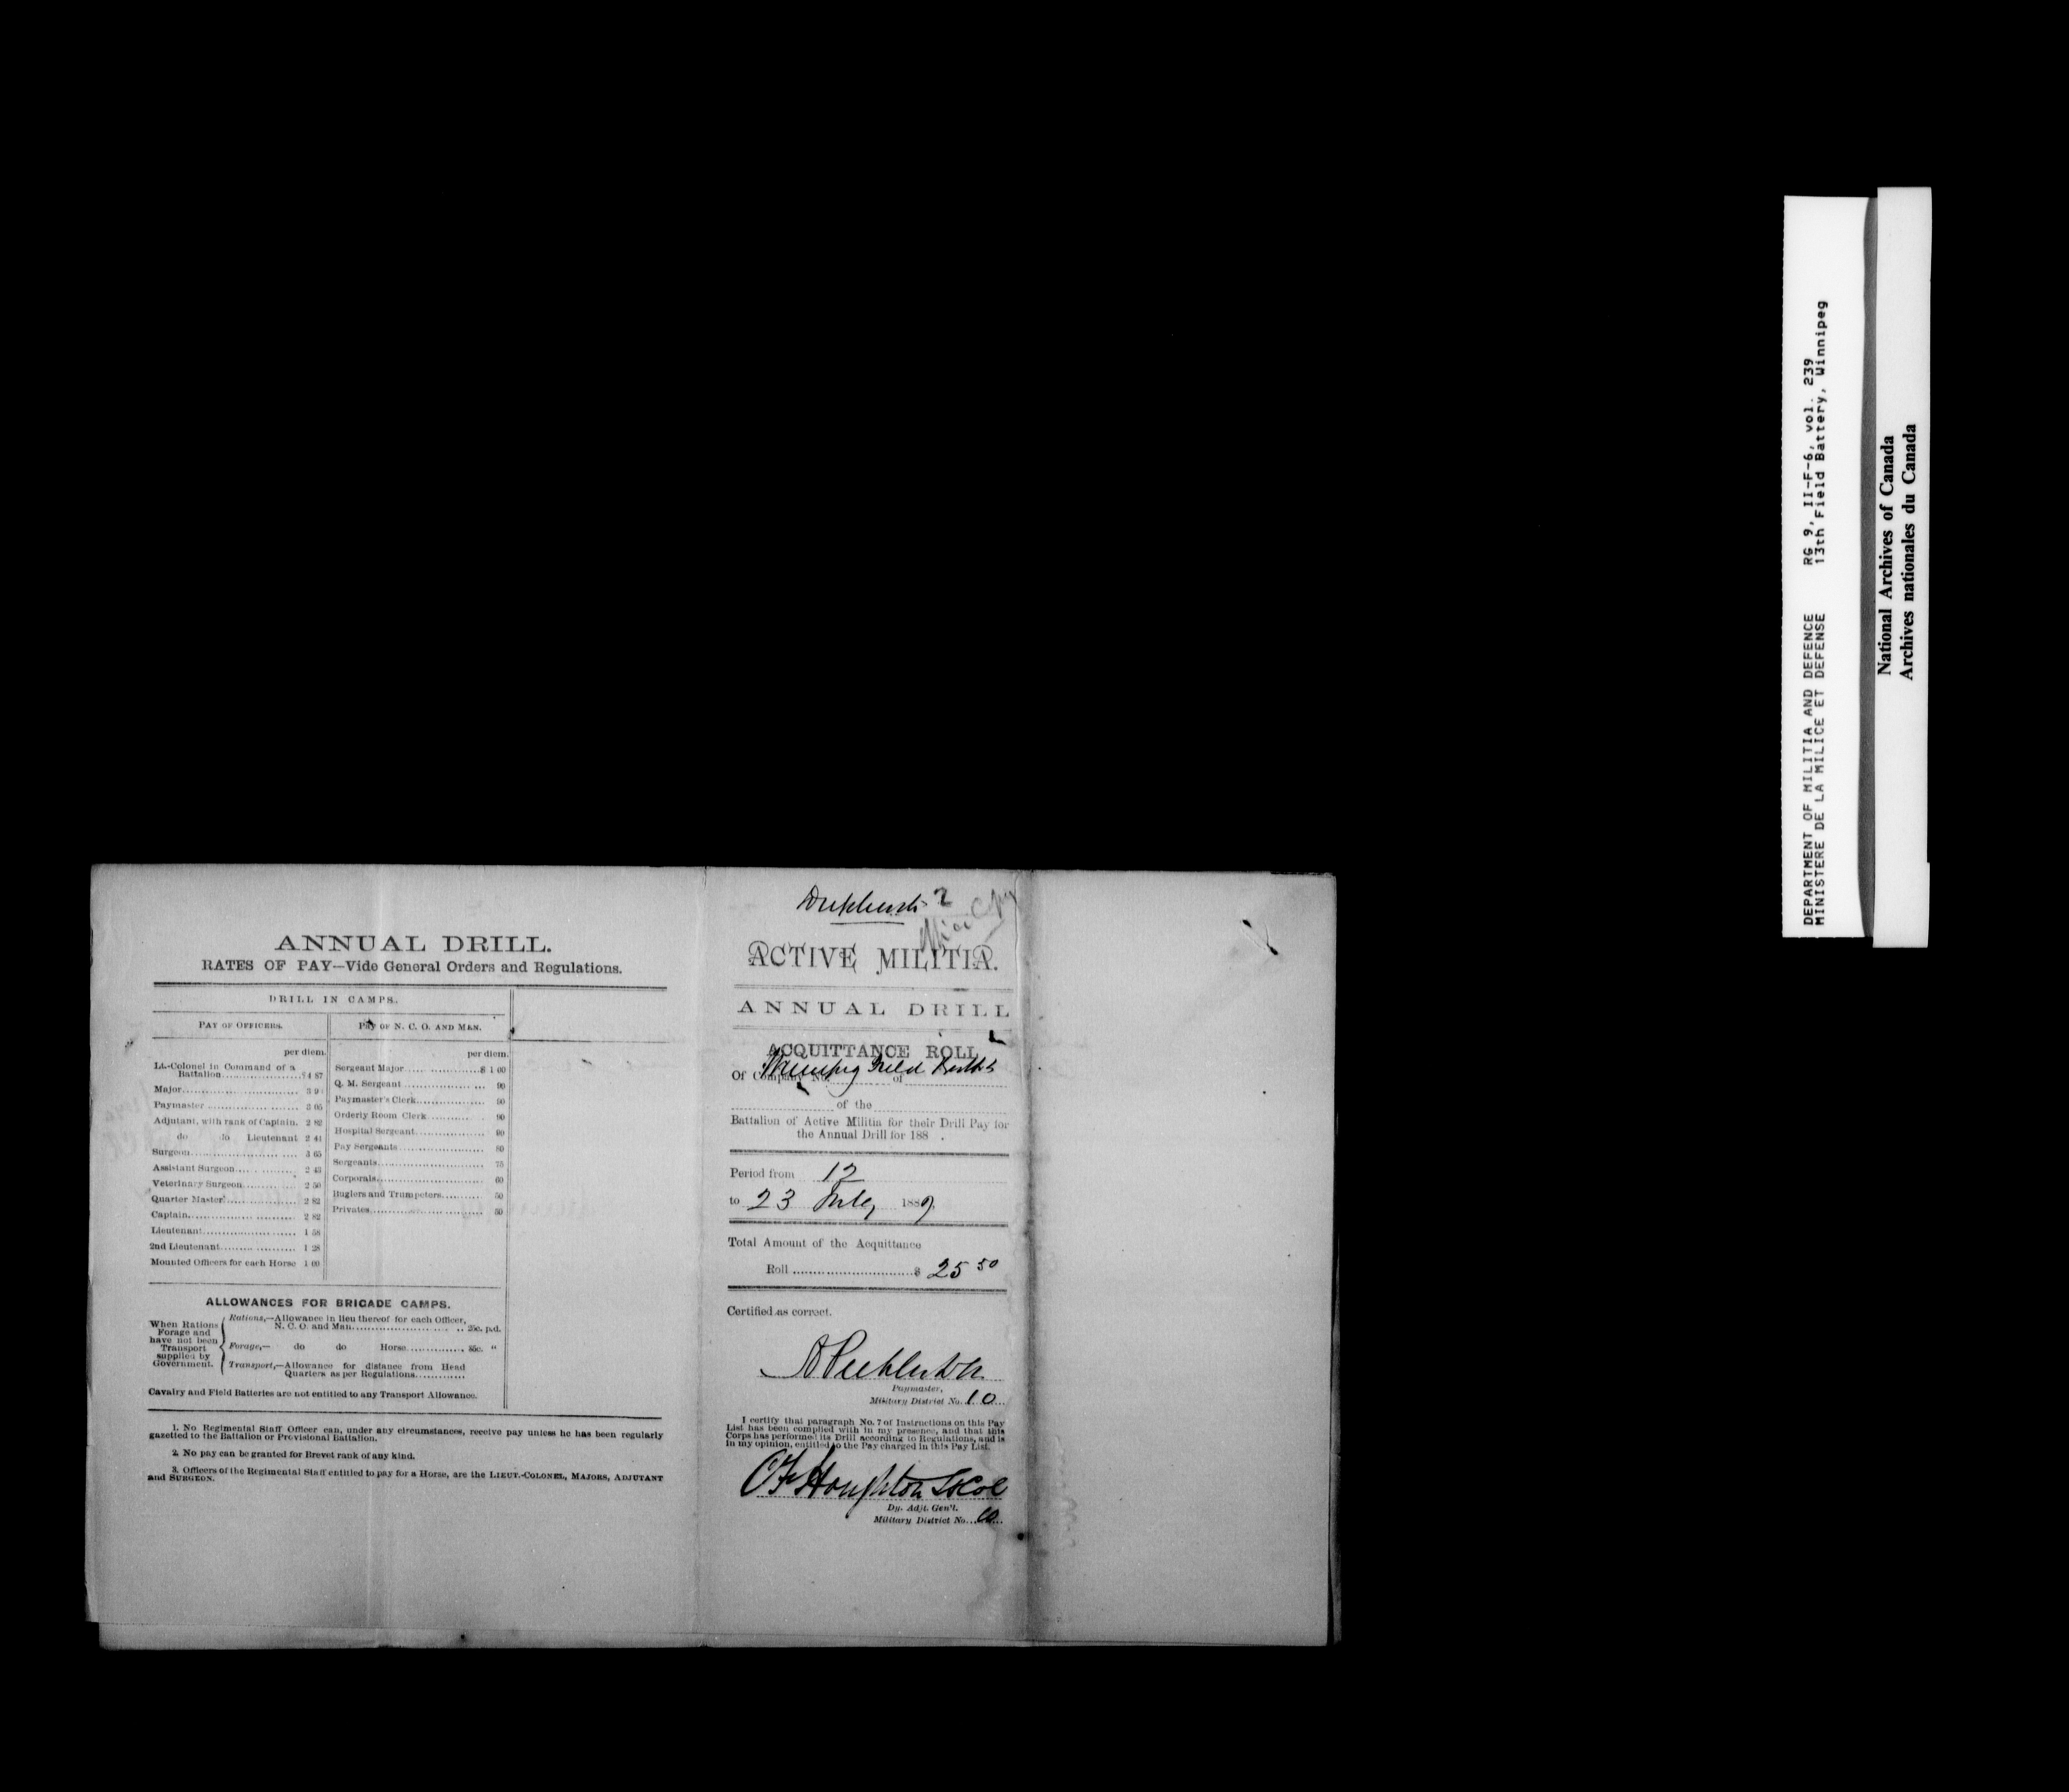 ANNUAL DRILL.
RATES OF PAY—Vide General Orders and Regulations.
DRILL IN CAMPS.
PAY OF OFFICERS.
per diem.
Lt.-Colonel in Command of a
Battalion....................$4 87
Major............................ 3 9
Paymaster ....................... 3 05
Adjutant, with rank of Captain. 2 82
do do Lieutenant 2 44
Surgeon.......................... 3 65
Assistant Surgeon............... 2 43
Veterinary Surgeon............. 2 50
Quarter Master.................. 2 82
Captain........................... 2 82
Lieutenant........................ 1 58
2nd Lieutenant................... 1 28
Mounted Officers for each Horse 1 00
PAY OF N. C. O. AND MEN.
per diem.
Sergeant Major..................$ 1 00
Q. M. Sergeant ................... 90
Paymaster's Clerk................. 90
Orderly Room Clerk............. 90
Hospital Sergeant................. 90
Pay Sergeants ..................... 80
Sergeants........................... 75
Corporals........................... 60
Buglers and Trumpeters.......... 50
Privates............................. 50
ALLOWANCES FOR BRIGADE CAMPS.
When Rations
Forage and
have not been
Transport
supplied by
Government.
Rations,—Allowance in lieu thereof for each Officer,
N. C. O. and Man........................ .. 25c. p.d.
Forage,— do do Horse.............. 35c. "
Transport,—Allowance for distance from Head
Quarters as per Regulations.............
Cavalry and Field Batteries are not entitled to any Transport Allowance.
1. No Regimental Staff Officer can, under any circumstances, receive pay unless he has been regularly
gazetted to the Battalion or Provisional Battalion.
2. No pay can be granted for Brevet rank of any kind.
3. Officers of the Regimental Staff entitled to pay for a Horse, are the LIEUT.-COLONEL, MAJORS, ADJUTANT
and SURGEON.
2
Copy
ACTIVE MILITIA.
ANNUAL DRILL
ACQUITTANCE ROLL
Winnipeg Field
Of Company No. of
of the
Battalion of Active Militia for their Drill Pay for
the Annual Drill for 188 .
Period from 12
to 23 July, 1889
Total Amount of the Acquittance
Roll ............................$ 25 50
Certified as correct.
Paymaster,
Military District No. 10
I certify that paragraph No. 7 of Instructions on this Pay
List has been complied with in my presence, and that this
Corps has performed its Drill according to Regulations, and is
in my opinion, entitled to the Pay charged in this Pay List.
Houghton
Dy. Adjt. Gen'l.
Military District No. 10
DEPARTMENT OF MILITIA AND DEFENCE RG 9, II-F-6, vol. 239
MINISTERE DE LA MILICE ET DEFENSE 13th Field Battery, Winnipeg
National Archives of Canada
Archives nationales du Canada